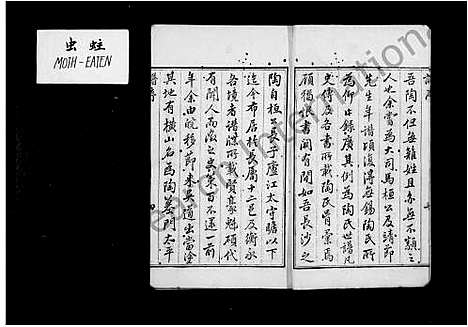 虫蛀
MOTH-EATEN
吾陶不但無雜姓且亦無不類之
人也余嘗為大司馬桓公及靖節
先生年譜頃復得無錫陶氏所
為仰止錄廣其例為陶氏世譜凡
史傳及各書所載陶氏前業焉
顧獨張書闕有間如吾長沙之
陶自桓公長子廬江太守瞻以下
迄今布居於長屬十二邑及衡永
各境者譜牒所載賢豪魁碩代
有聞人而徵之史策百不逮一前
年余由皖移節來吳道出當塗
其地有橫山名為陶墓門太平